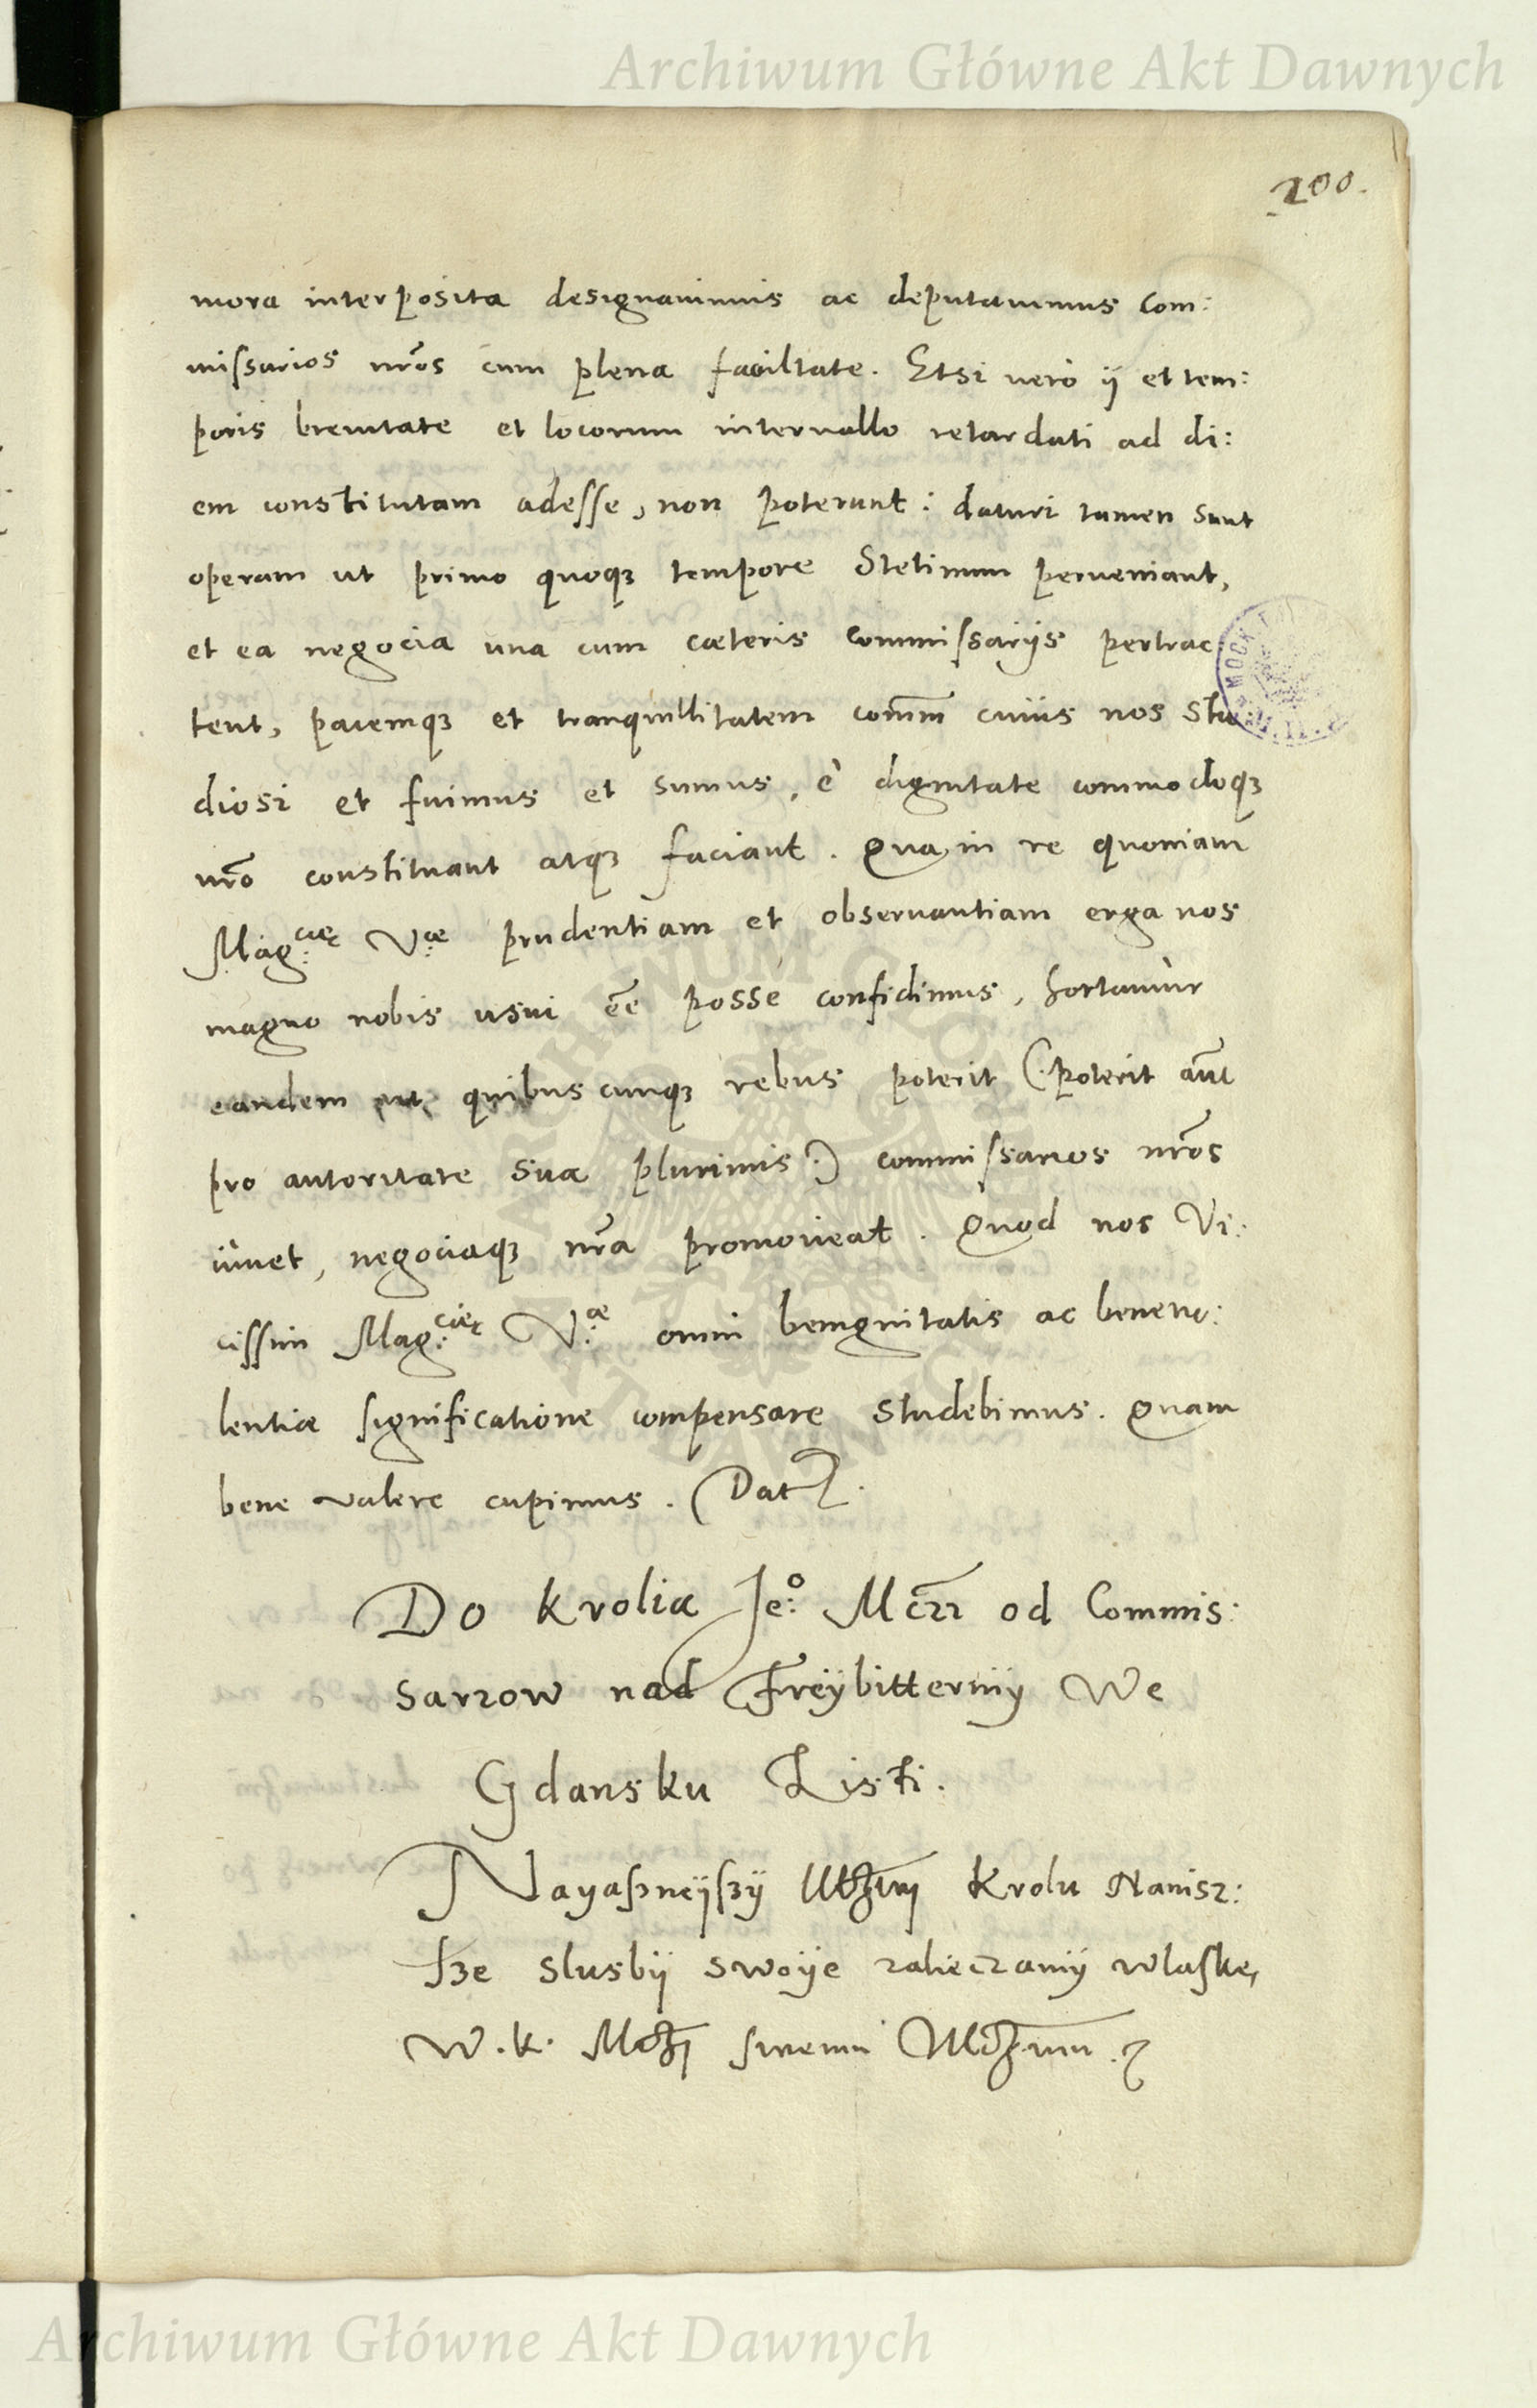 Archiwum Główne Akt Dawnych
200.
mora interposita designauimus ac deputauimus Com:
missarios nr̃os cum plena facultate. Etsi uero ij et tem:
poris breuitate et locorum interuallo retardati ad di:
em constitutam adesse, non poterunt: daturi tamen sunt
operam ut primo quoqꝫ tempore Stetinum perueniant,
et ea negocia una cum cæteris Commissarijs pertrac
tent, pacemqꝫ et tranquillitatem com̃m cuius nos stu
diosi et fuimus et sumus, è dignitate commodoqꝫ
nr̃o constituant atqꝫ faciant. Qua in re quoniam
Mag:cię V:æ prudentiam et obseruantiam erga nos
magno nobis usui eẽ posse confidimus, hortamur
eandem ut quibuscunqꝫ rebus poterit (:poterit aũt
pro autoritate sua plurimis:) commissarios nr̃os
iuuet, negociaqꝫ nr̃a promoueat. Quod nos Vi:
cissim Mag:cię V:æ omni benignitatis ac beneuo:
lentiæ significatione compensare studebimus. Quam
bene valere cupimus. Dat
Do Krolia Je:o Mczi od Commis:
sarzow nad Freybittermÿ We
Gdansku Listi.
Nayaßneÿßÿ Krolu Nanisz:
sze slusbÿ swoÿe zalieczamÿ wlaskę
W.K. swemu
Archiwum Główne Akt Dawnych